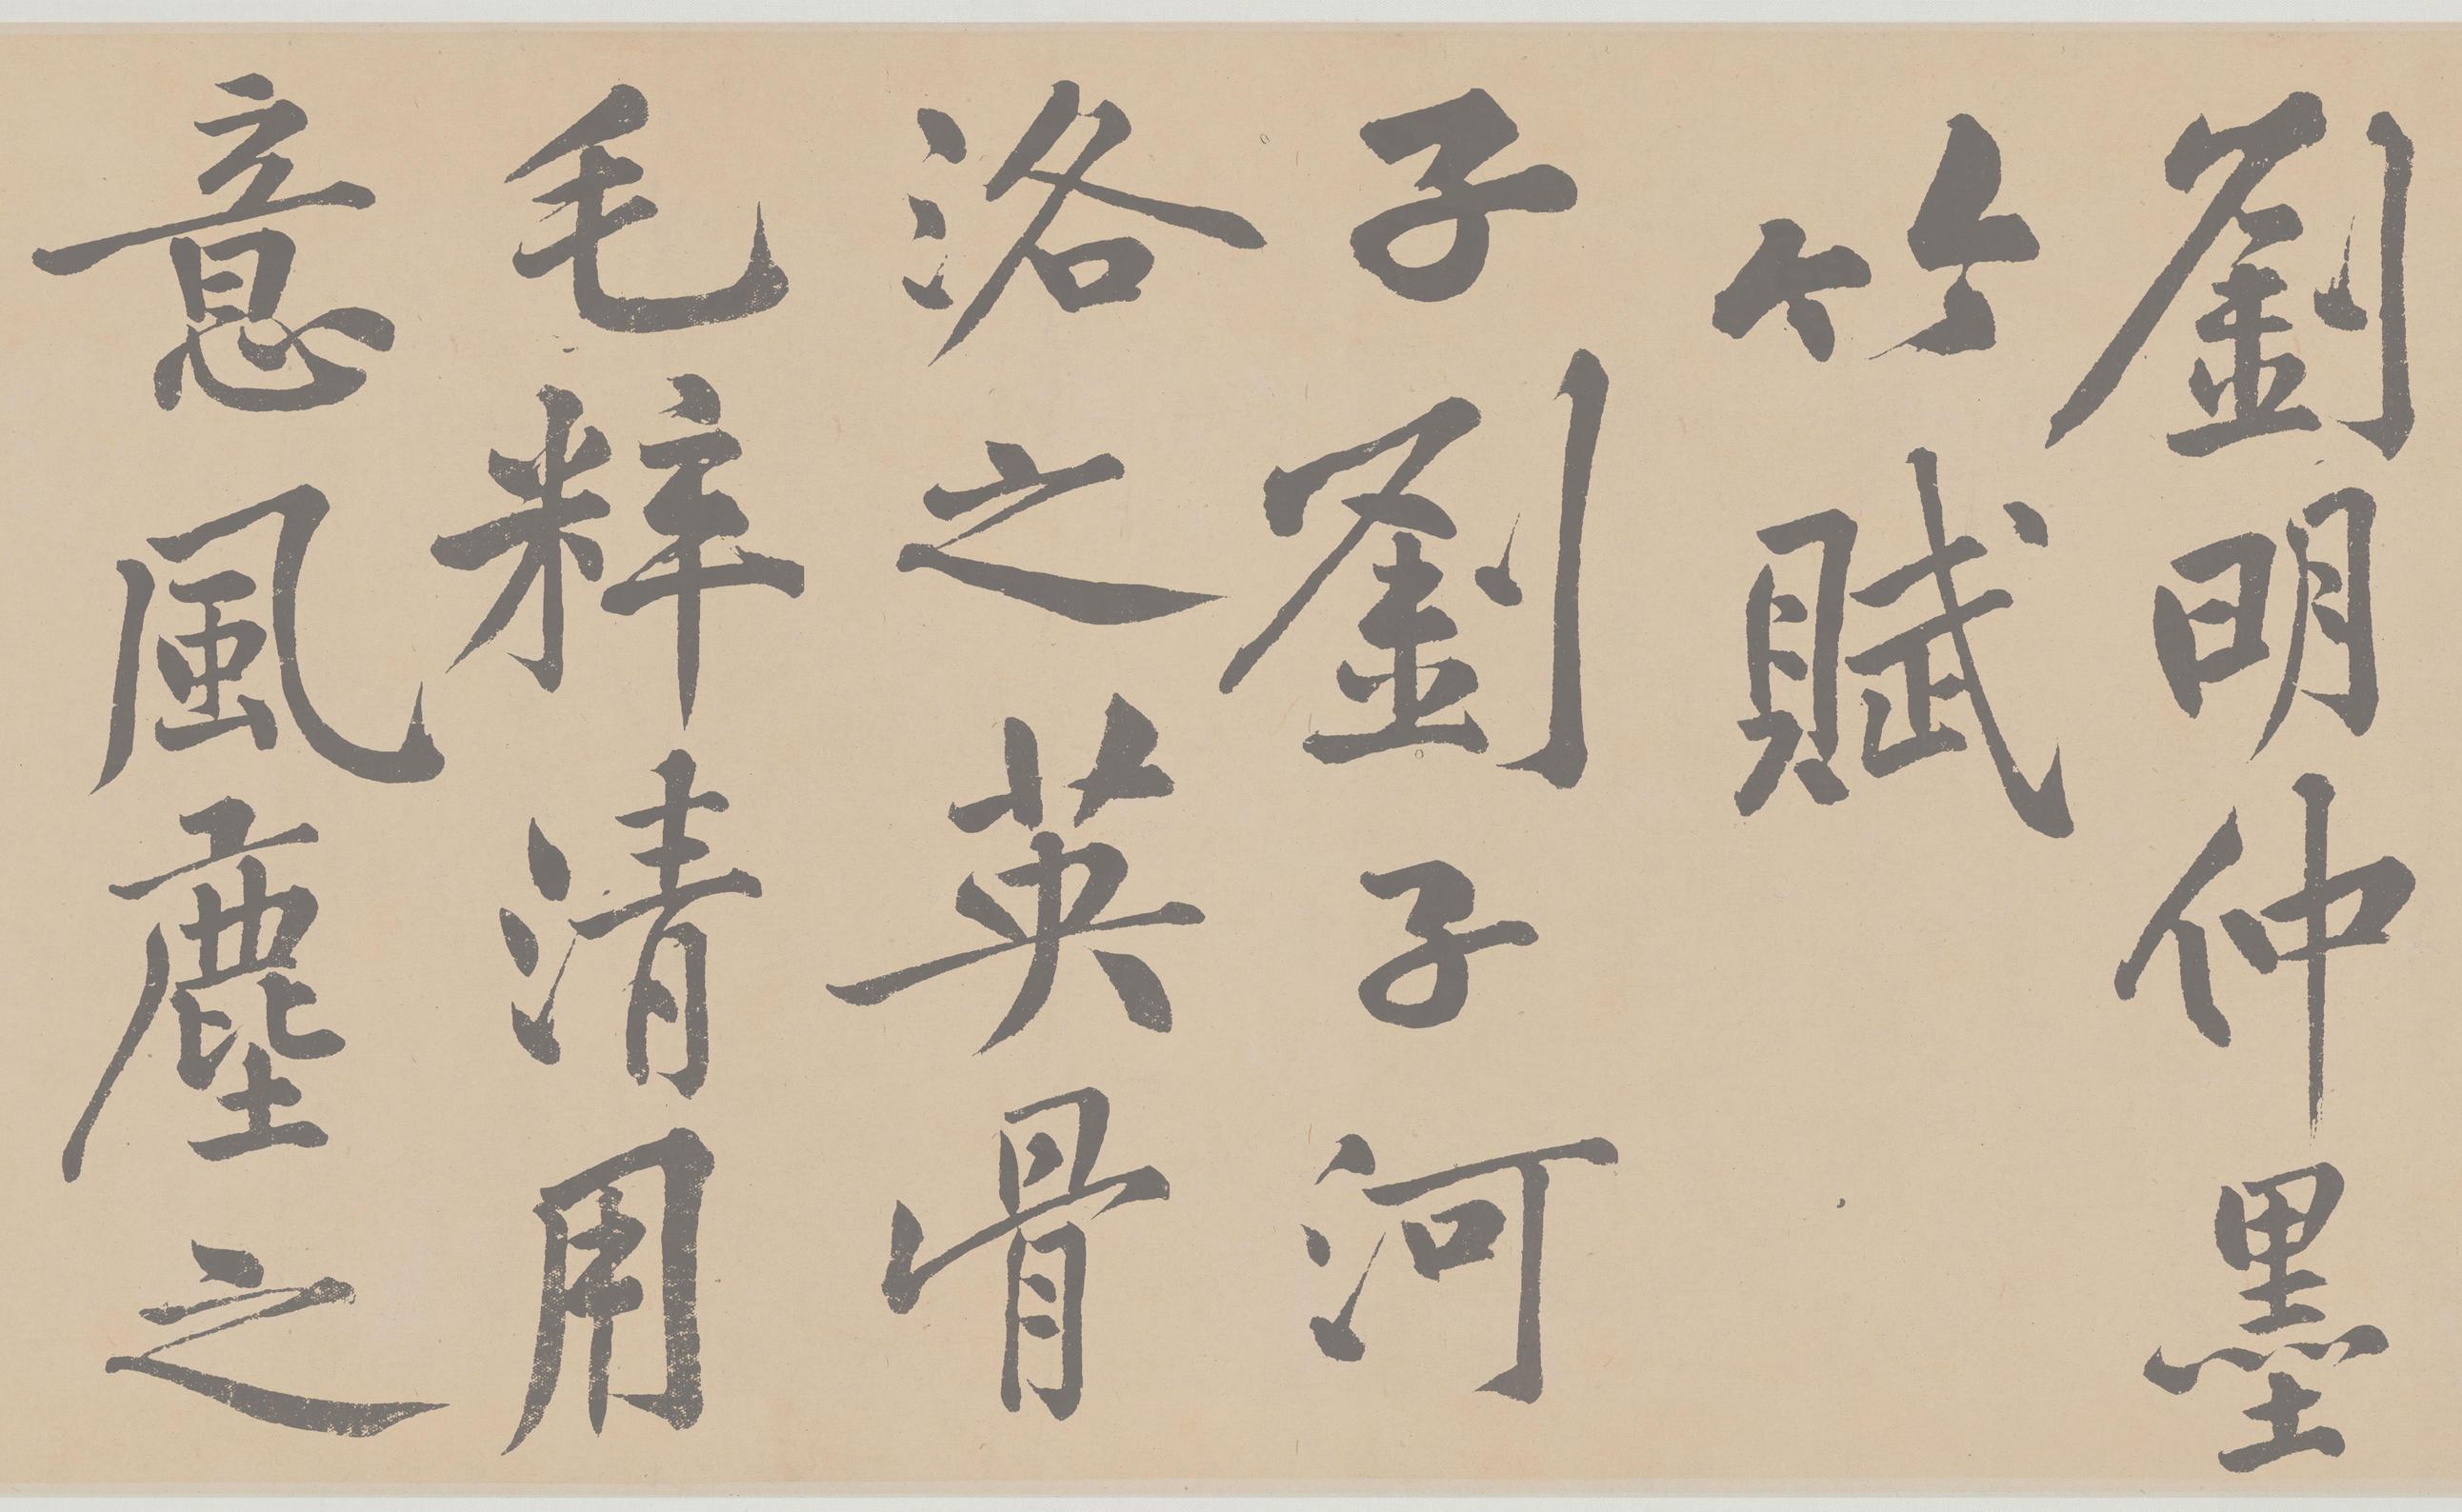 劉明仲墨
竹賦
子劉子河
洛之英骨
毛粹清用
意風塵之